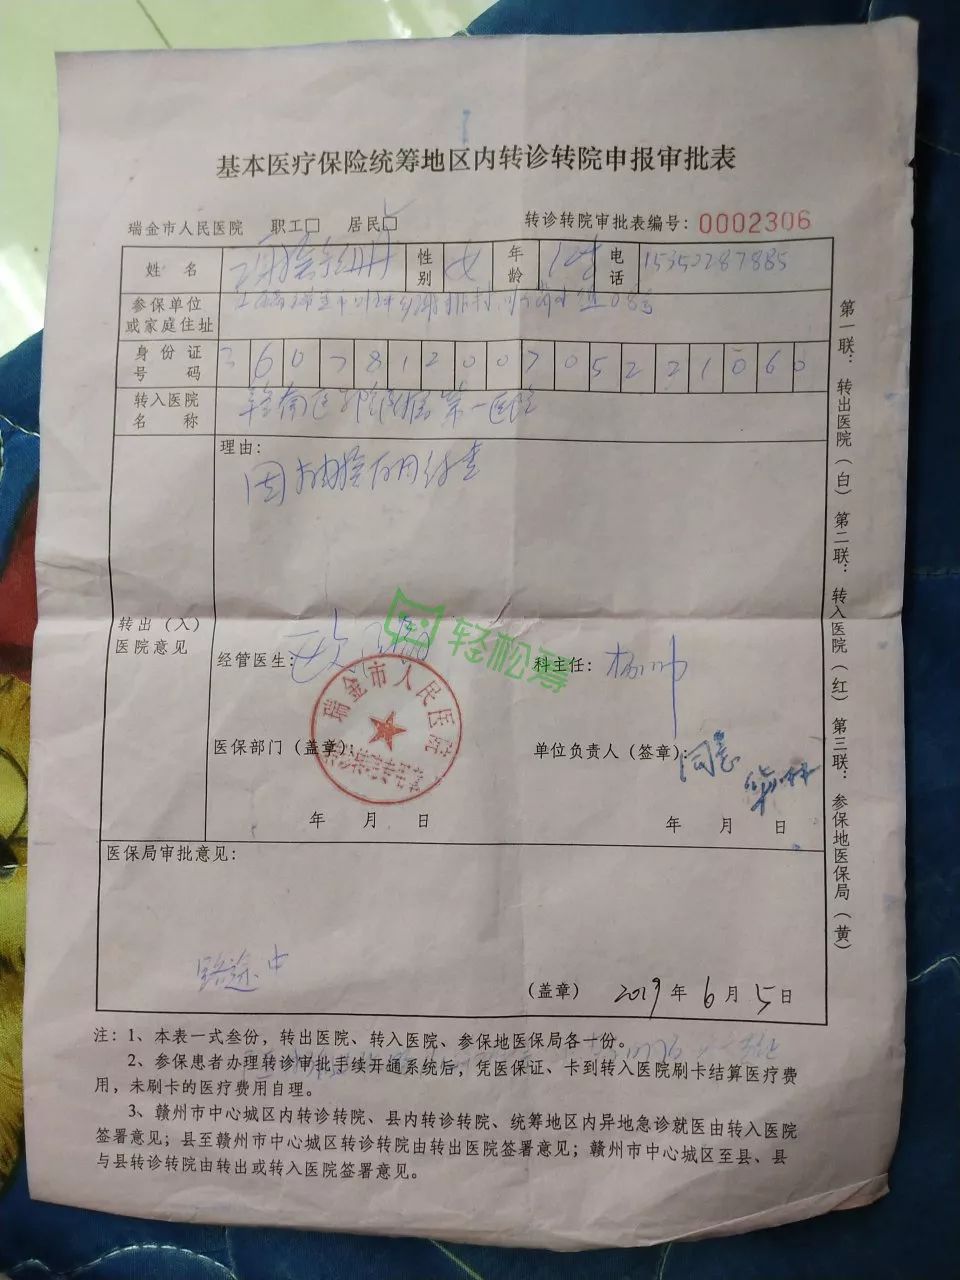 基本医疗保险统筹地区内转诊转院申报审批表
瑞金市人民医院 职工□ 居民□ 转诊转院审批表编号：0002306
姓名 性别 女 年龄 电话 15352287885
参保单位或家庭住址
身份证号码 360781200705221060
转入医院名称 第一医院
转出（入）医院意见
理由：
因
经管医生： 科主任：
轻松筹
瑞金市人民医院
医保部门（盖章）： 单位负责人（签章）：
同意
年 月 日 年 月 日
医保局审批意见：
路途中
（盖章） 2019年6月5日
注：1、本表一式叁份，转出医院、转入医院、参保地医保局各一份。
2、参保患者办理转诊审批手续开通系统后，凭医保证、卡到转入医院刷卡结算医疗费
用，未刷卡的医疗费用自理。
3、赣州市中心城区内转诊转院、县内转诊转院、统筹地区内异地急诊就医由转入医院
签署意见；县至赣州市中心城区转诊转院由转出医院签署意见；赣州市中心城区至县、县
与县转诊转院由转出或转入医院签署意见。
第一联：转出医院（白）第二联：转入医院（红）第三联：参保地医保局（黄）